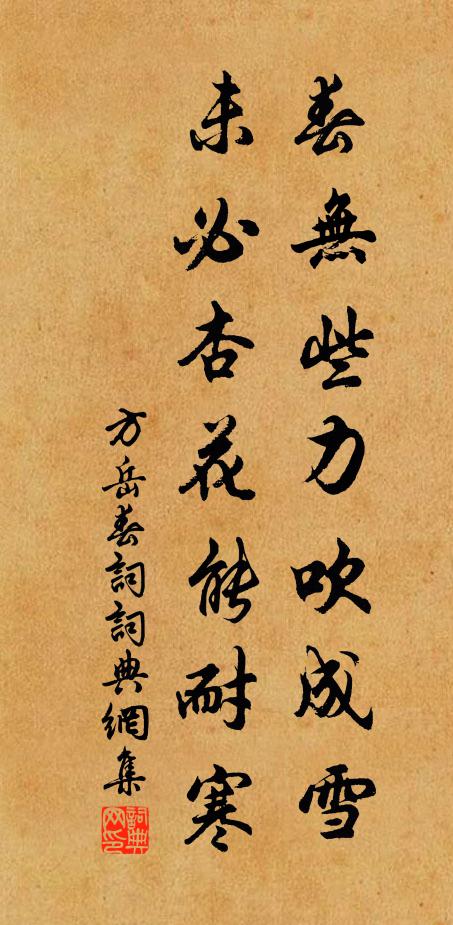 春無些力吹成雪
未必杏花能耐寒
方岳春詞詞典網集
詞典
网印